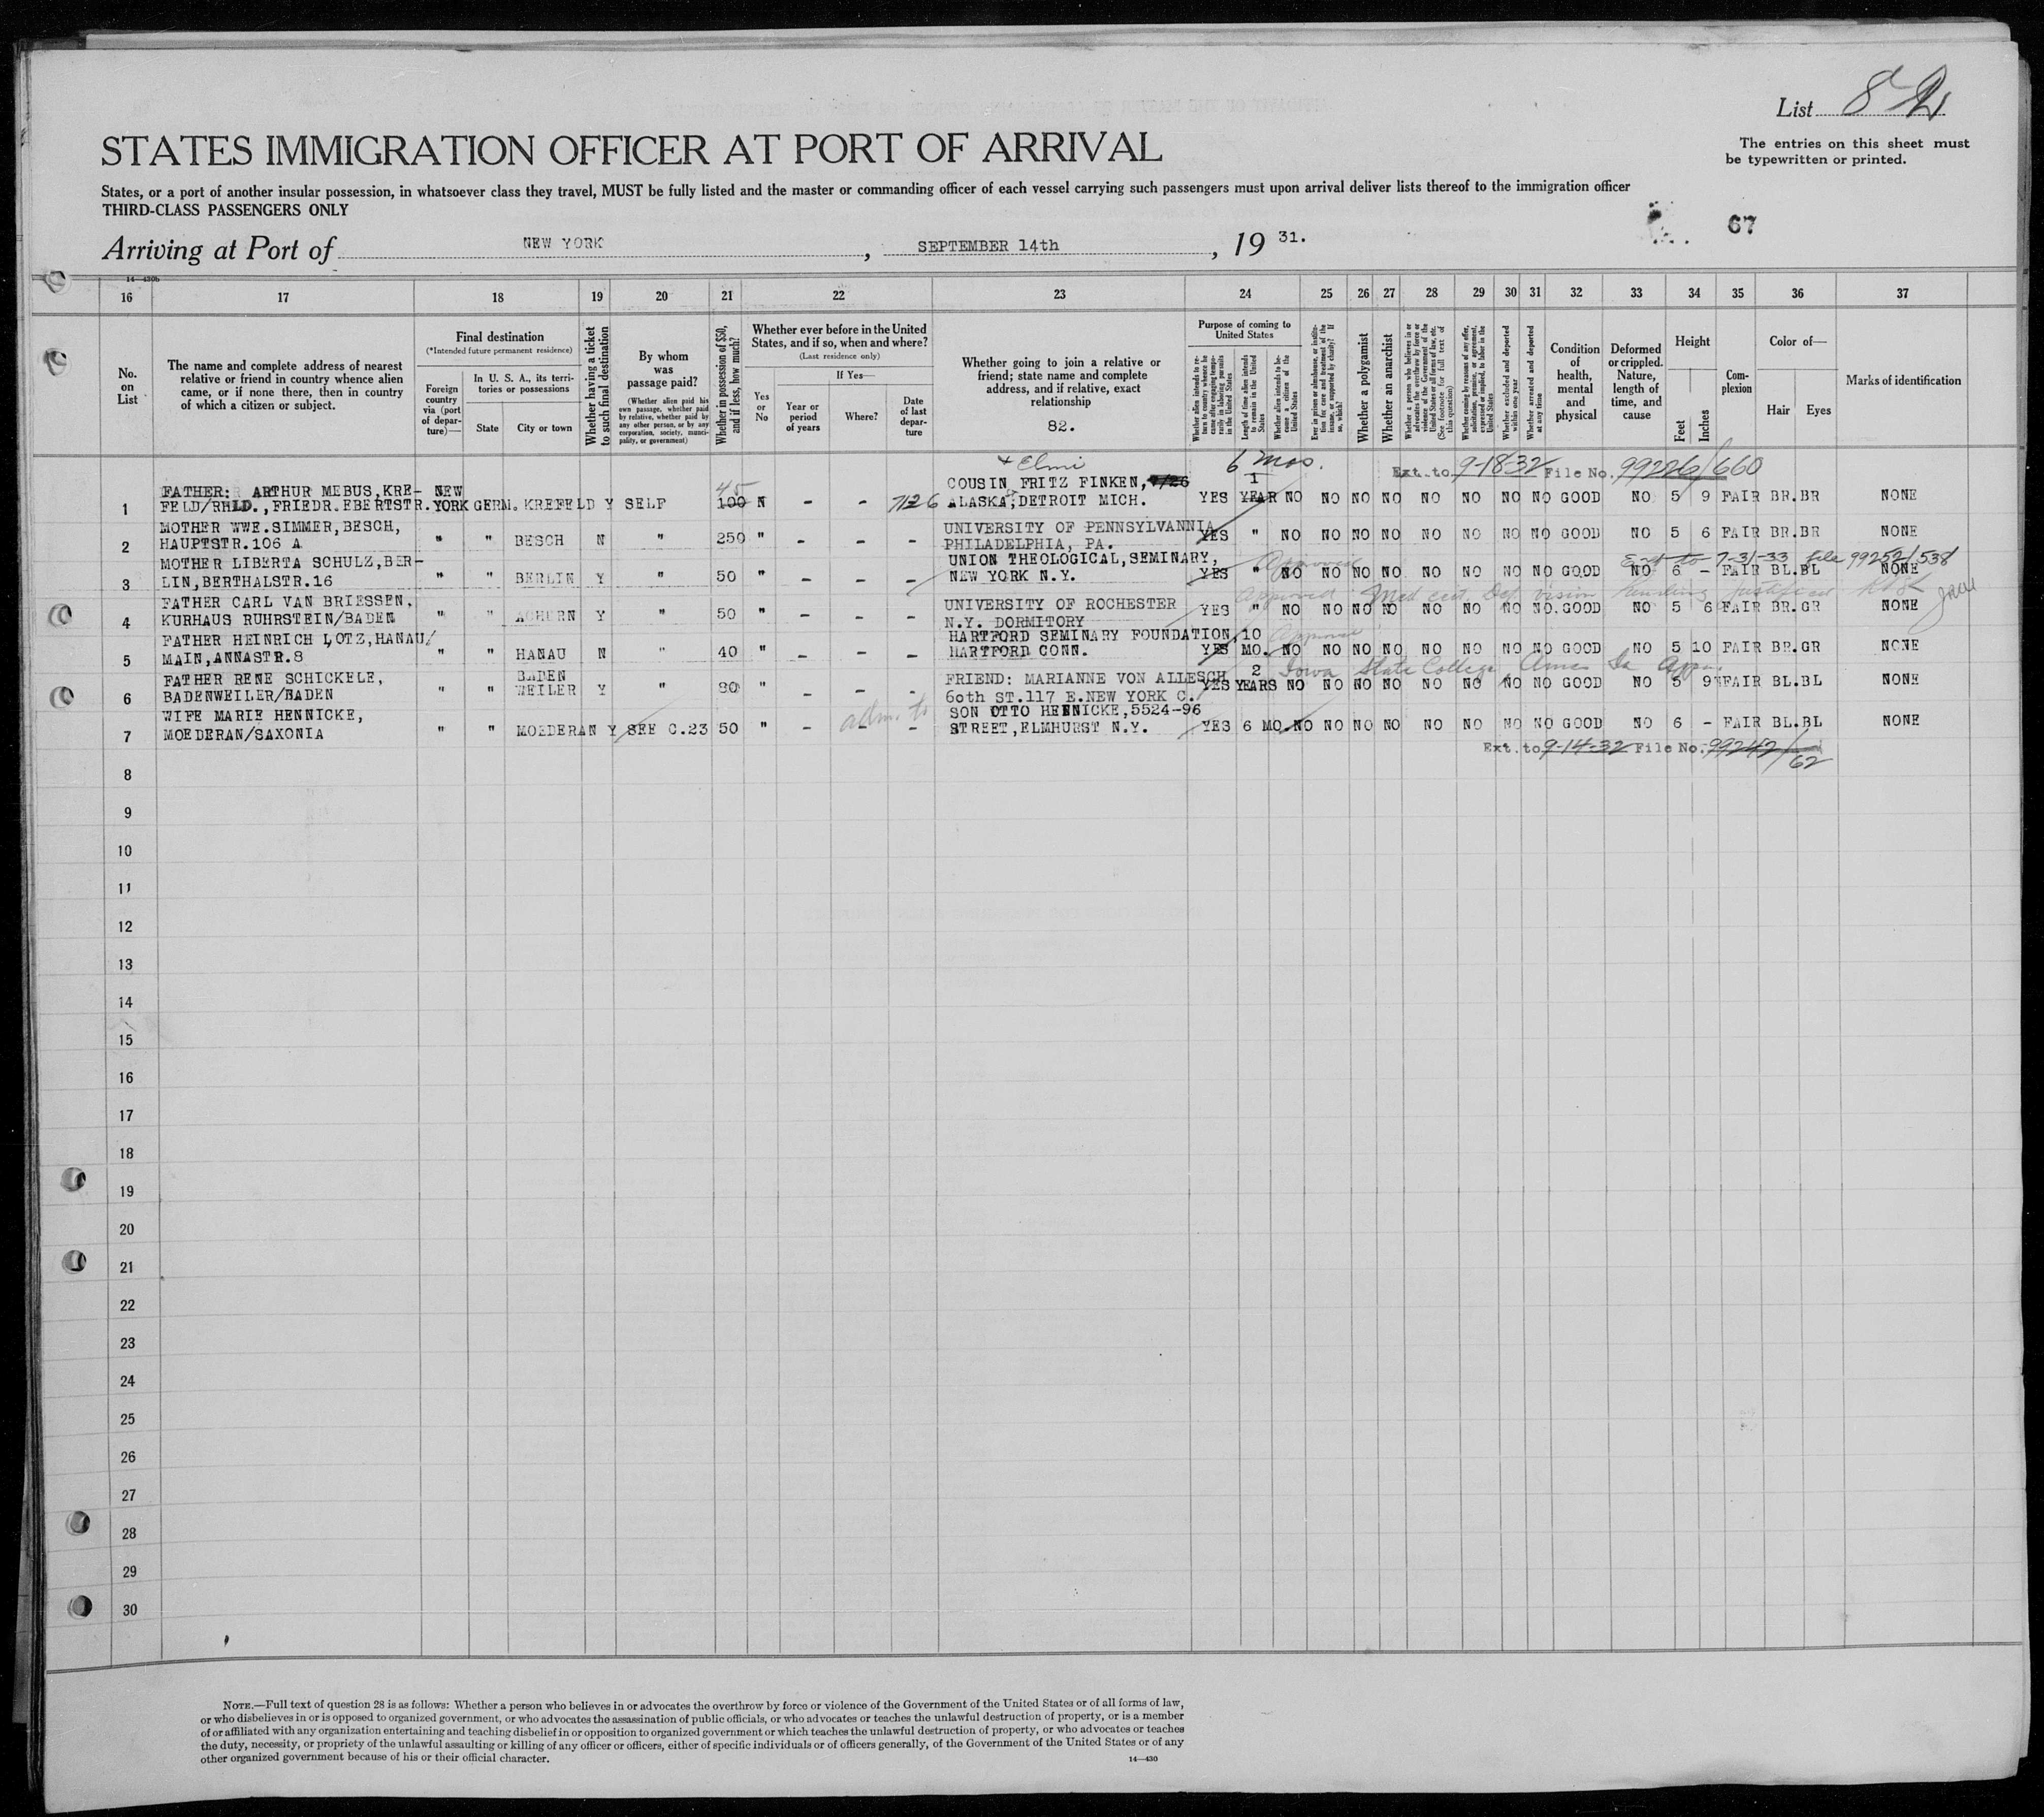 List 82
STATES IMMIGRATION OFFICER AT PORT OF ARRIVAL
The entries on this sheet must
be typewritten or printed.
States, or a port of another insular possession, in whatsoever class they travel, MUST be fully listed and the master or commanding officer of each vessel carrying such passengers must upon arrival deliver lists thereof to the immigration officer
THIRD-CLASS PASSENGERS ONLY
67
Arriving at Port of NEW YORK, SEPTEMBER 14th, 19 31.
14—430b
16 17 18 19 20 21 22 23 24 25 26 27 28 29 30 31 32 33 34 35 36 37
No. on List
The name and complete address of nearest
relative or friend in country whence alien
came, or if none there, then in country
of which a citizen or subject.
Final destination
(*Intended future permanent residence)
Foreign country via (port of departure)—
In U. S. A., its territories or possessions
State
City or town
Whether having a ticket to such final destination
By whom was passage paid?
(Whether alien paid his own passage, whether paid by relative, whether paid by any other person, or by any corporation, society, municipality, or government)
Whether in possession of $50, and if less, how much?
Whether ever before in the United
States, and if so, when and where?
(Last residence only)
Yes or No
If Yes—
Year or period of years
Where?
Date of last departure
Whether going to join a relative or
friend; state name and complete
address, and if relative, exact
relationship
82.
Purpose of coming to United States
Whether alien intends to return to country whence he came after engaging temporarily in laboring pursuits in the United States
Length of time alien intends to remain in the United States
Whether alien intends to become a citizen of the United States
Ever in prison or almshouse, or institution for care and treatment of the insane, or supported by charity? If so, which?
Whether a polygamist
Whether an anarchist
Whether a person who believes in or advocates the overthrow by force or violence of the Government of the United States or all forms of law, etc. (See footnote for full text of this question)
Whether coming by reason of any offer, solicitation, promise, or agreement, expressed or implied, to labor in the United States
Whether excluded and deported within one year
Whether arrested and deported at any time
Condition of health, mental and physical
Deformed or crippled. Nature, length of time, and cause
Height
Feet
Inches
Complexion
Color of—
Hair
Eyes
Marks of identification
6 mos. Ext. to 9-18-32 File No. 99226/660
1 FATHER: ARTHUR MEBUS, KRE-
FELD/RHLD., FRIEDR. EBERTSTR. NEW YORK GERM. KREFELD Y SELF 45 100 N - - 7126 COUSIN FRITZ FINKEN,
ALASKA, DETROIT MICH. YES 1 YEAR NO NO NO NO NO NO NO NO GOOD NO 5 9 FAIR BR.BR NONE
2 MOTHER WWE. SIMMER, BESCH,
HAUPTSTR. 106 A " " BESCH N " 250 " - - - UNIVERSITY OF PENNSYLVANNIA
PHILADELPHIA, PA. YES " NO NO NO NO NO NO NO NO GOOD NO 5 6 FAIR BR.BR NONE
Approved Ext to 7-31-33 file 99252/538
3 MOTHER LIBERTA SCHULZ, BER-
LIN, BERTHALSTR. 16 " " BERLIN Y " 50 " - - - UNION THEOLOGICAL, SEMINARY,
NEW YORK N.Y. YES " NO NO NO NO NO NO NO NO GOOD NO 6 - FAIR BL.BL NONE
Approved Med cert. Def. vision
4 FATHER CARL VAN BRIESSEN,
KURHAUS RUHRSTEIN/BADEN " " ACHERN Y " 50 " - - - UNIVERSITY OF ROCHESTER
N.Y. DORMITORY YES " NO NO NO NO NO NO NO NO GOOD NO 5 6 FAIR BR.GR NONE
5 FATHER HEINRICH LOTZ, HANAU/
MAIN, ANNASTR. 8 " " HANAU N " 40 " - - - HARTFORD SEMINARY FOUNDATION,
HARTFORD CONN. YES 10 MO. NO NO NO NO NO NO NO NO GOOD NO 5 10 FAIR BR.GR NONE
Approved
Iowa State College Ames Ia App.
6 FATHER RENE SCHICKELE,
BADENWEILER/BADEN " " BADEN WEILER Y " 80 " - - - FRIEND: MARIANNE VON ALLESCH
60th ST. 117 E. NEW YORK C. YES 2 YEARS NO NO NO NO NO NO NO NO GOOD NO 5 9 FAIR BL.BL NONE
7 WIFE MARIE HENNICKE,
MOEDERAN/SAXONIA " " MOEDERAN Y SEE C.23 50 " - - - adm. to SON OTTO HENNICKE, 5524-96
STREET, ELMHURST N.Y. YES 6 MO. NO NO NO NO NO NO NO NO GOOD NO 6 - FAIR BL.BL NONE
Ext. to 9-14-32 File No. 99242/62
8
9
10
11
12
13
14
15
16
17
18
19
20
21
22
23
24
25
26
27
28
29
30
NOTE.—Full text of question 28 is as follows: Whether a person who believes in or advocates the overthrow by force or violence of the Government of the United States or of all forms of law,
or who disbelieves in or is opposed to organized government, or who advocates the assassination of public officials, or who advocates or teaches the unlawful destruction of property, or is a member
of or affiliated with any organization entertaining and teaching disbelief in or opposition to organized government or which teaches the unlawful destruction of property, or who advocates or teaches
the duty, necessity, or propriety of the unlawful assaulting or killing of any officer or officers, either of specific individuals or of officers generally, of the Government of the United States or of any
other organized government because of his or their official character.
14—430